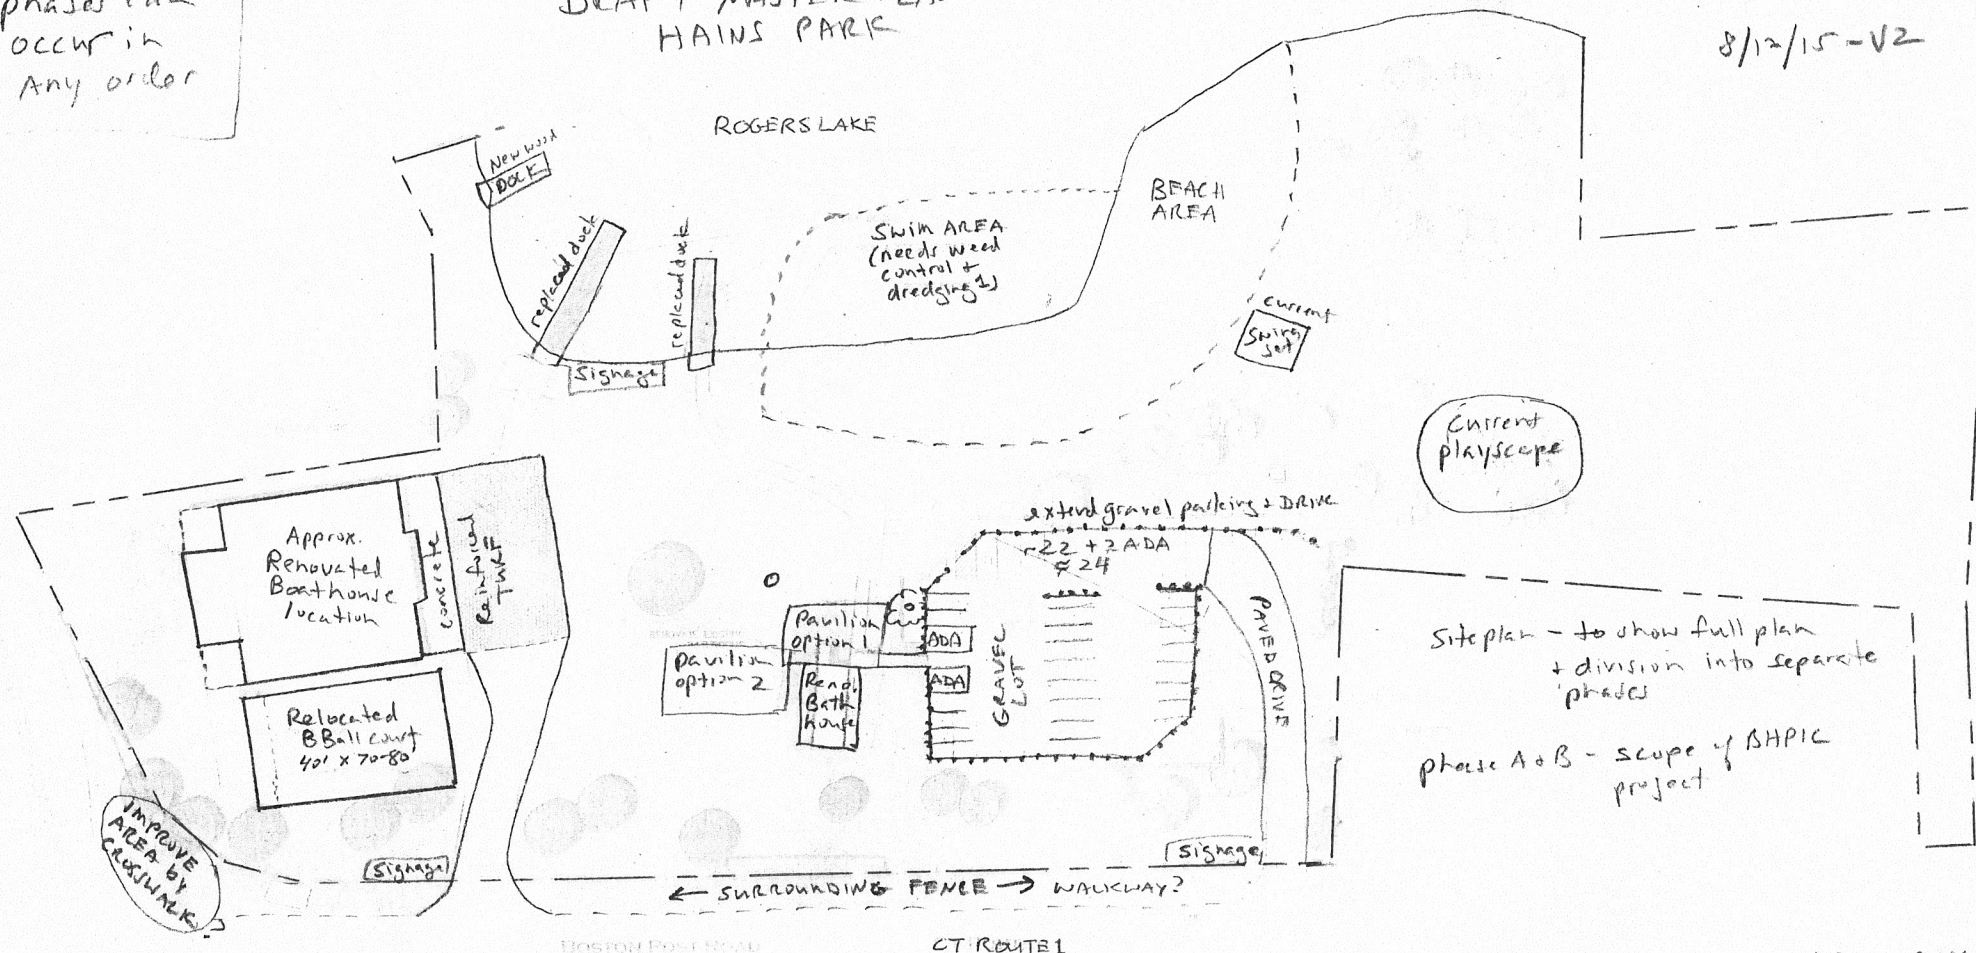 phases can
occur in
Any order
DRAFT MASTER PLAN
HAINS PARK
8/12/15 - V2
ROGERS LAKE
New wood
DOCK
replaced dock
replaced dock
Signage
SWIM AREA
(needs weed
control +
dredging
BEACH
AREA
current
Swing
set
Current
playscape
Approx.
Renovated
Boathouse
location
concrete
Reinforced
TURF
Relocated
BBall court
40' x 70-80'
IMPROVE
AREA by
CROSSWALK
?
Signage
extend gravel parking + DRIVE
~22 + 2 ADA
≈ 24
Pavilion
option 1
Pavilion
option 2
Reno.
Bath
house
ADA
ADA
GRAVEL
LOT
PAVED DRIVE
Signage
Site plan - to show full plan
+ division into separate
phases
phase A + B - scope of BHPIC
project
← SURROUNDING FENCE → WALKWAY?
BOSTON POST ROAD
CT ROUTE 1